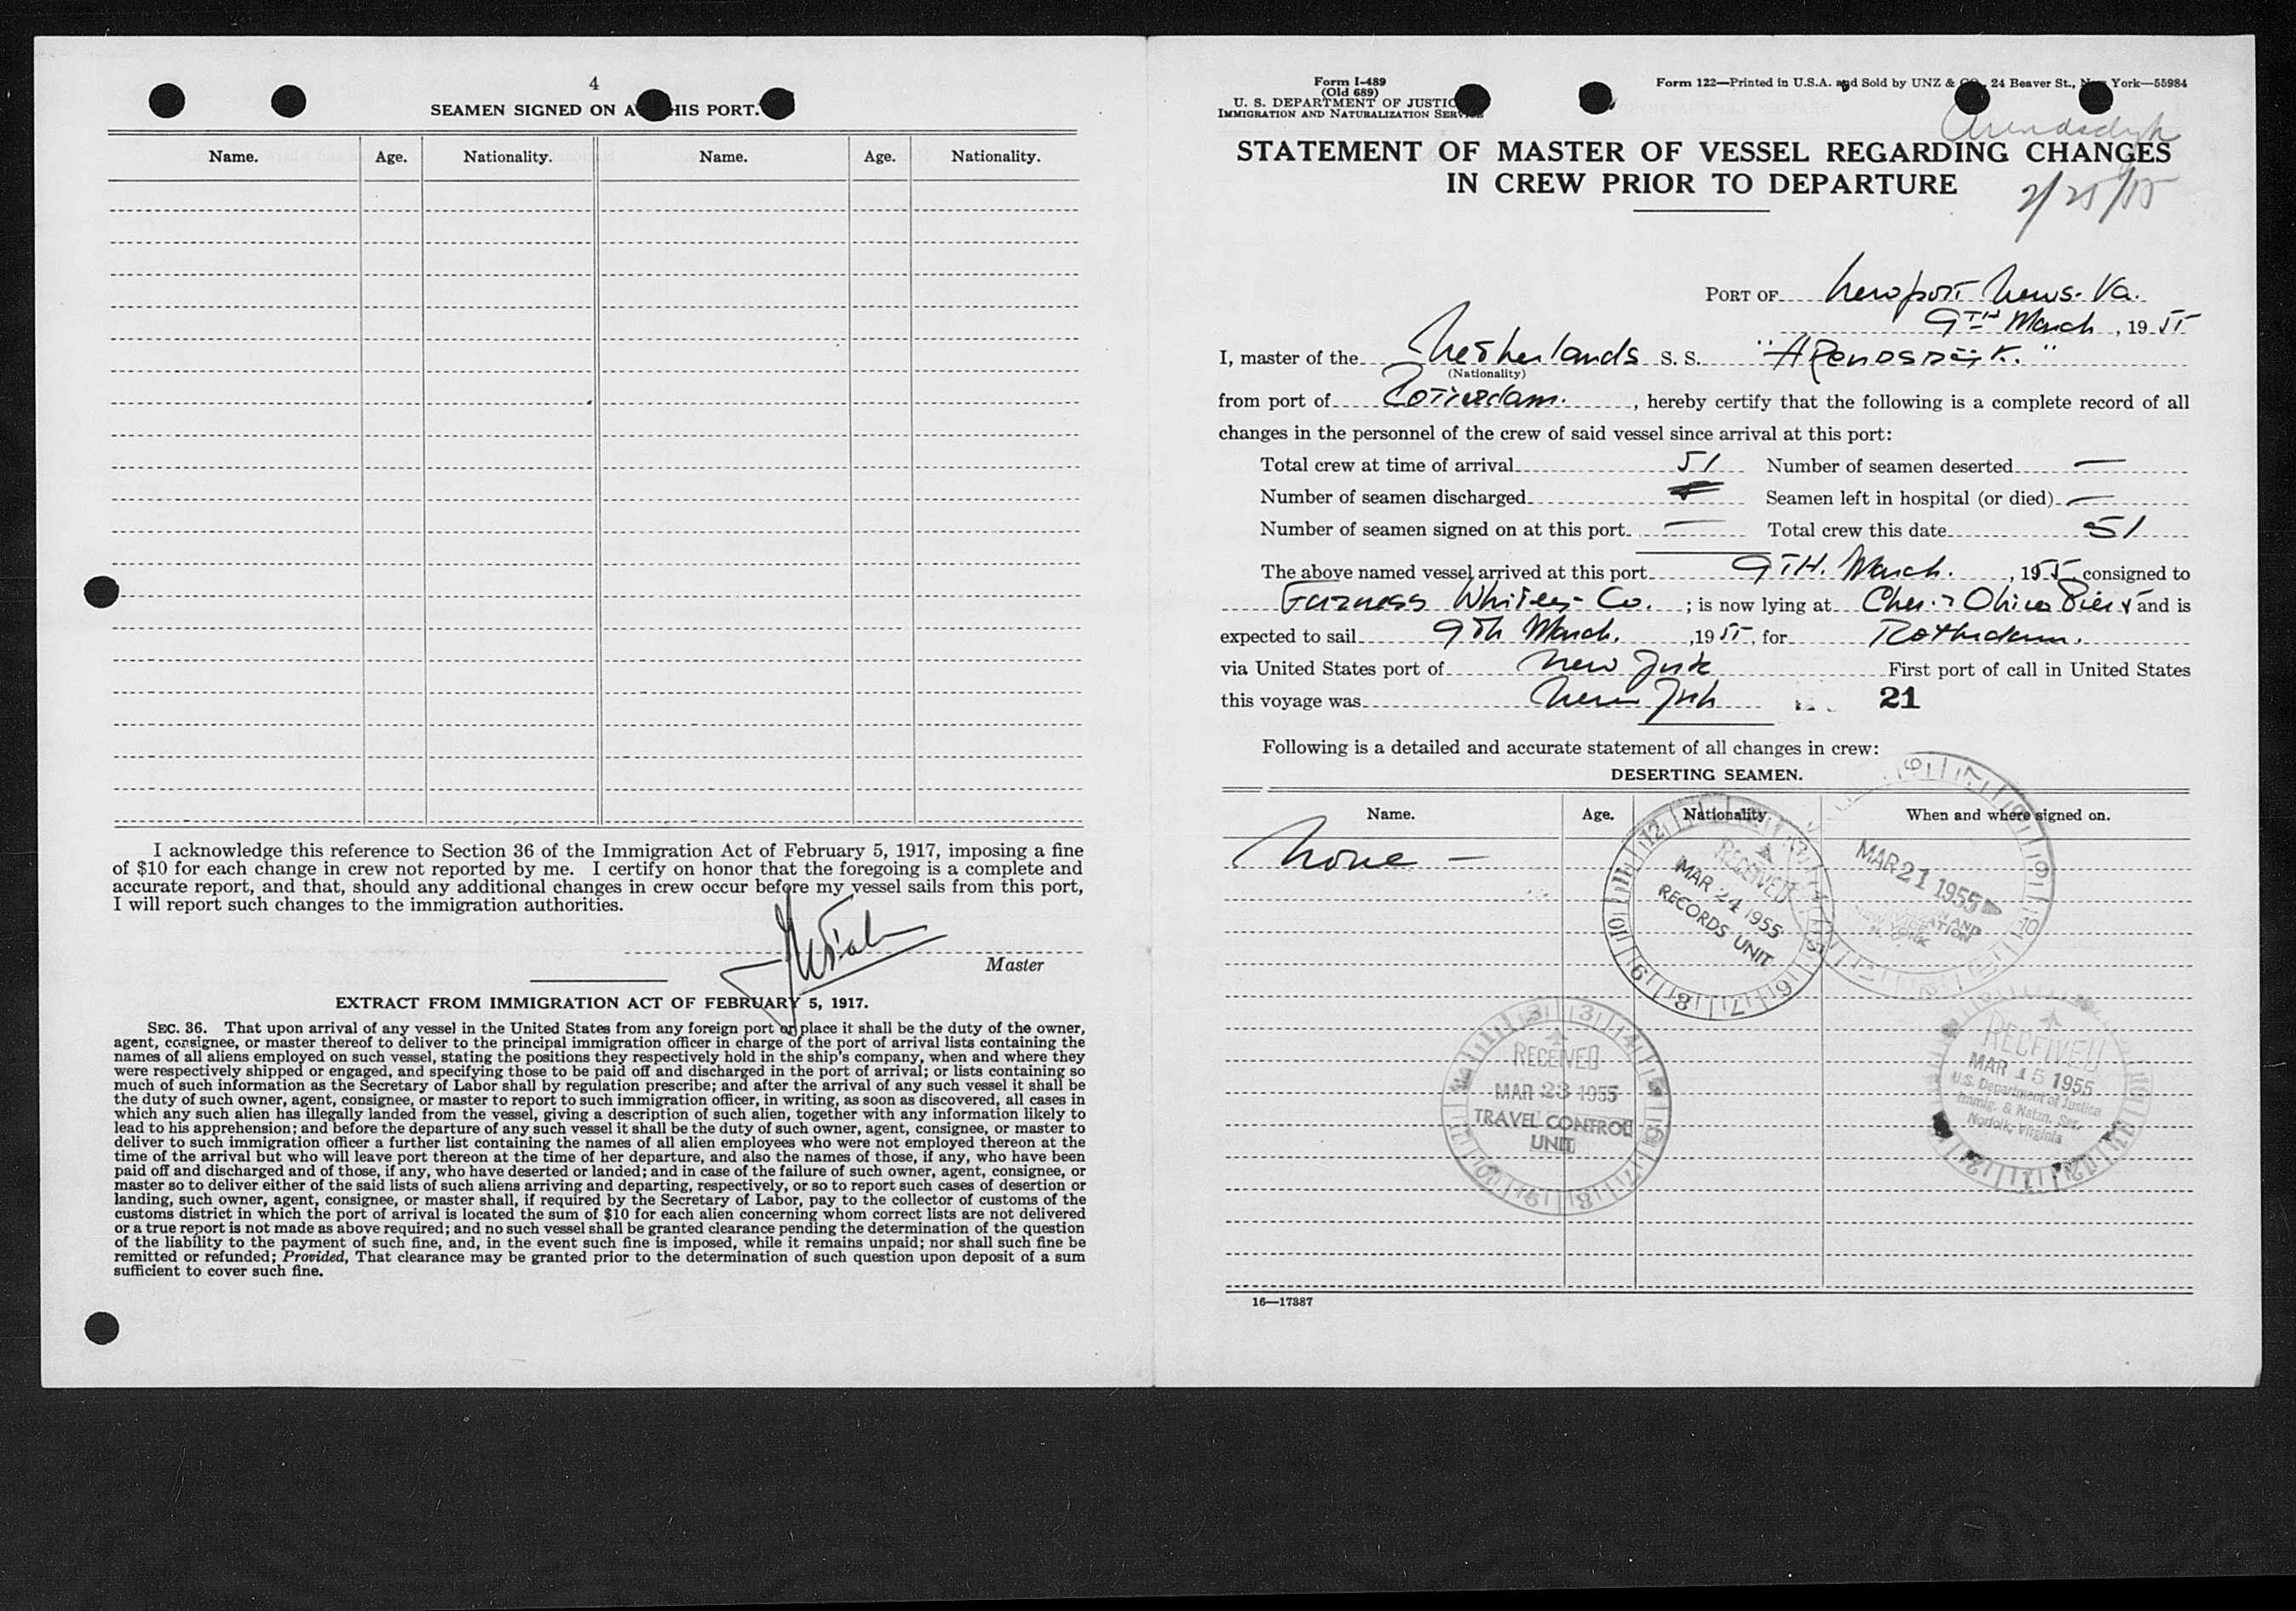 4
SEAMEN SIGNED ON A HIS PORT.
Name. Age. Nationality. Name. Age. Nationality.
I acknowledge this reference to Section 36 of the Immigration Act of February 5, 1917, imposing a fine
of $10 for each change in crew not reported by me. I certify on honor that the foregoing is a complete and
accurate report, and that, should any additional changes in crew occur before my vessel sails from this port,
I will report such changes to the immigration authorities.
Master
EXTRACT FROM IMMIGRATION ACT OF FEBRUARY 5, 1917.
SEC. 36. That upon arrival of any vessel in the United States from any foreign port or place it shall be the duty of the owner,
agent, consignee, or master thereof to deliver to the principal immigration officer in charge of the port of arrival lists containing the
names of all aliens employed on such vessel, stating the positions they respectively hold in the ship's company, when and where they
were respectively shipped or engaged, and specifying those to be paid off and discharged in the port of arrival; or lists containing so
much of such information as the Secretary of Labor shall by regulation prescribe; and after the arrival of any such vessel it shall be
the duty of such owner, agent, consignee, or master to report to such immigration officer, in writing, as soon as discovered, all cases in
which any such alien has illegally landed from the vessel, giving a description of such alien, together with any information likely to
lead to his apprehension; and before the departure of any such vessel it shall be the duty of such owner, agent, consignee, or master to
deliver to such immigration officer a further list containing the names of all alien employees who were not employed thereon at the
time of the arrival but who will leave port thereon at the time of her departure, and also the names of those, if any, who have been
paid off and discharged and of those, if any, who have deserted or landed; and in case of the failure of such owner, agent, consignee, or
master so to deliver either of the said lists of such aliens arriving and departing, respectively, or so to report such cases of desertion or
landing, such owner, agent, consignee, or master shall, if required by the Secretary of Labor, pay to the collector of customs of the
customs district in which the port of arrival is located the sum of $10 for each alien concerning whom correct lists are not delivered
or a true report is not made as above required; and no such vessel shall be granted clearance pending the determination of the question
of the liability to the payment of such fine, and, in the event such fine is imposed, while it remains unpaid; nor shall such fine be
remitted or refunded; Provided, That clearance may be granted prior to the determination of such question upon deposit of a sum
sufficient to cover such fine.
Form I-489
(Old 689)
U. S. DEPARTMENT OF JUSTIC
IMMIGRATION AND NATURALIZATION SERVICE
Form 122—Printed in U.S.A. and Sold by UNZ & CO. 24 Beaver St., New York—55984
Arendsdyk
STATEMENT OF MASTER OF VESSEL REGARDING CHANGES
IN CREW PRIOR TO DEPARTURE
2/25/55
PORT OF Newport News. Va.
9TH March, 1955
I, master of the Netherlands S. S. "ARENDSDIJK."
(Nationality)
from port of Rotterdam. , hereby certify that the following is a complete record of all
changes in the personnel of the crew of said vessel since arrival at this port:
Total crew at time of arrival 51 Number of seamen deserted —
Number of seamen discharged Seamen left in hospital (or died) —
Number of seamen signed on at this port. — Total crew this date 51
The above named vessel arrived at this port 9TH. March. , 1955, consigned to
Furness Withy Co. ; is now lying at Ches. & Ohio Pier and is
expected to sail 9th March. , 1955, for Rotterdam.
via United States port of New York First port of call in United States
this voyage was New York 21
Following is a detailed and accurate statement of all changes in crew:
DESERTING SEAMEN.
Name. Age. Nationality. When and where signed on.
None —
RECEIVED
MAR 24 1955
RECORDS UNIT
MAR 21 1955
RECEIVED
MAR 23 1955
TRAVEL CONTROL
UNIT
RECEIVED
MAR 15 1955
U.S. Department of Justice
Immig. & Natzn. Ser.
Norfolk, Virginia
16—17387